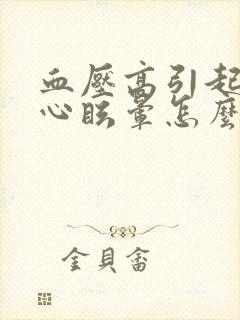 血壓高引起
心眩暈怎麼
金貝畲